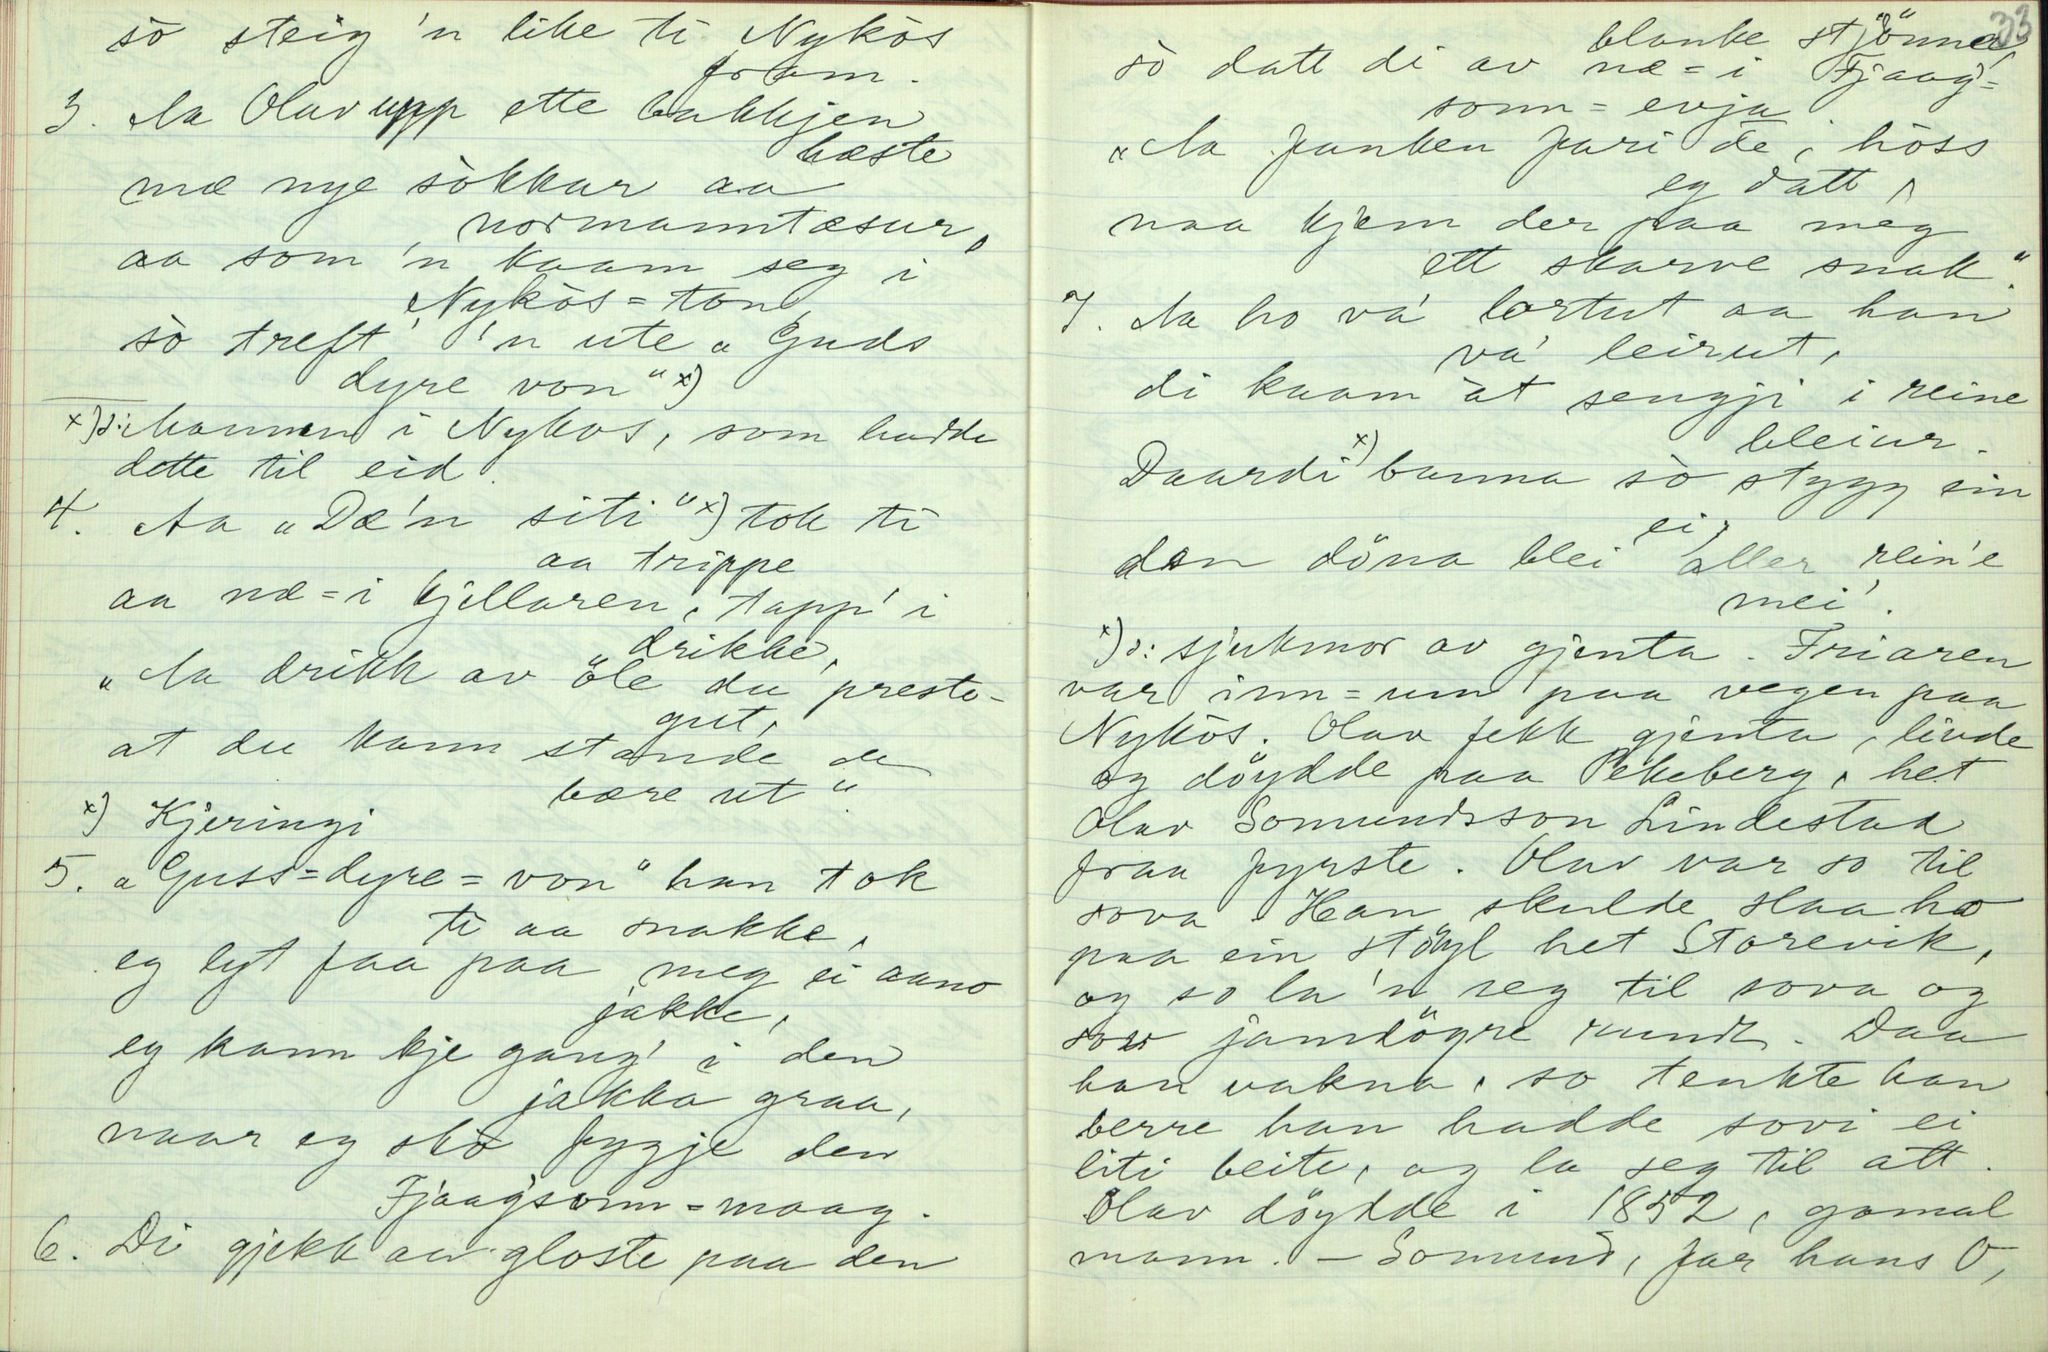 sò steig 'n like ti Nykòs
fram.
3. Aa Olav upp ette bakkjen
bæste
mæ nye sòkkar aa
normanntæsur,
aa som 'n kaam seg i
Nykòs=ton,
sò treft' 'n ute „Guds
dyre von" x)
x) ɔ: mannen i Nykos, som hadde
dette til eid.
4. Aa „Dæ'n siti" x) tok ti
aa trippe
aa næ=i kjellaren, tapp' i
drikke,
„Aa drikk av öle du preste-
gut,
at du kann stande de
bære ut"
x) Kjeringi
5. „Guss=dyre=von" han tok
ti aa snakke,
eg lyt faa paa meg ei aano
jakke,
eg kann kje gang' i den
jakka graa,
naar eg sko fygje den
Fjaagsonn=maag.
6. Di gjekk aa gloste paa den
33
blanke stjönna,
sò datt di av næ=i Fjaag=
sonn=evja
„Aa fanken fari de, höss
eg datt,
naa kjem der paa meg
ett skarve snak".
7. Aa ho va' lortut aa han
va' leirut,
di kaam àt sengji i reine
bleiur.
Daardi x) banna sò stygg ein
ei,
den döna blei aller rein'e
mei'.
x) ɔ: sjukmor av gjenta. Friaren
var inn=um paa vegen paa
Nykòs. Olav fekk gjenta, livde
og döydde paa Pekeberg, het
Olav Somundsson Lindestad
fraa fyrste. Olav var so til
sova. Han skulde slaa ho
paa ein stöyl het Storevik,
og so la'n seg til sova og
sov jamdögre rundt. Daa
han vakna, so tenkte han
berre han hadde sovi ei
liti beite, og la seg til att.
Olav döydde i 1852, gomal
mann. – Somund, far hans O,